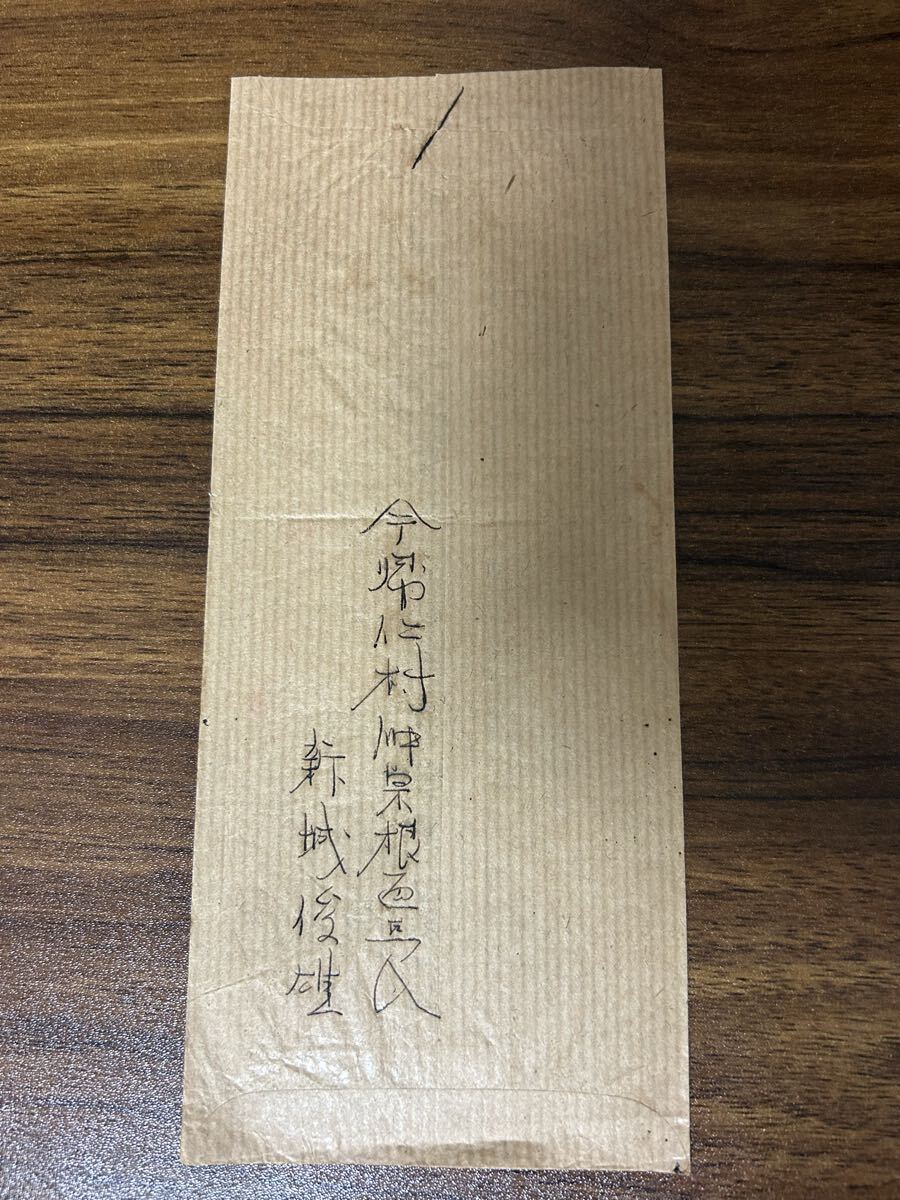 今帰仁村仲宗根
新城俊雄